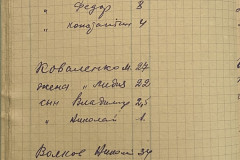 " Федор 8
" Константин 4
Коваленко М. 27
жена " Лидия 22
сын Владимир 2,5
" Николай 1.
Волков 34